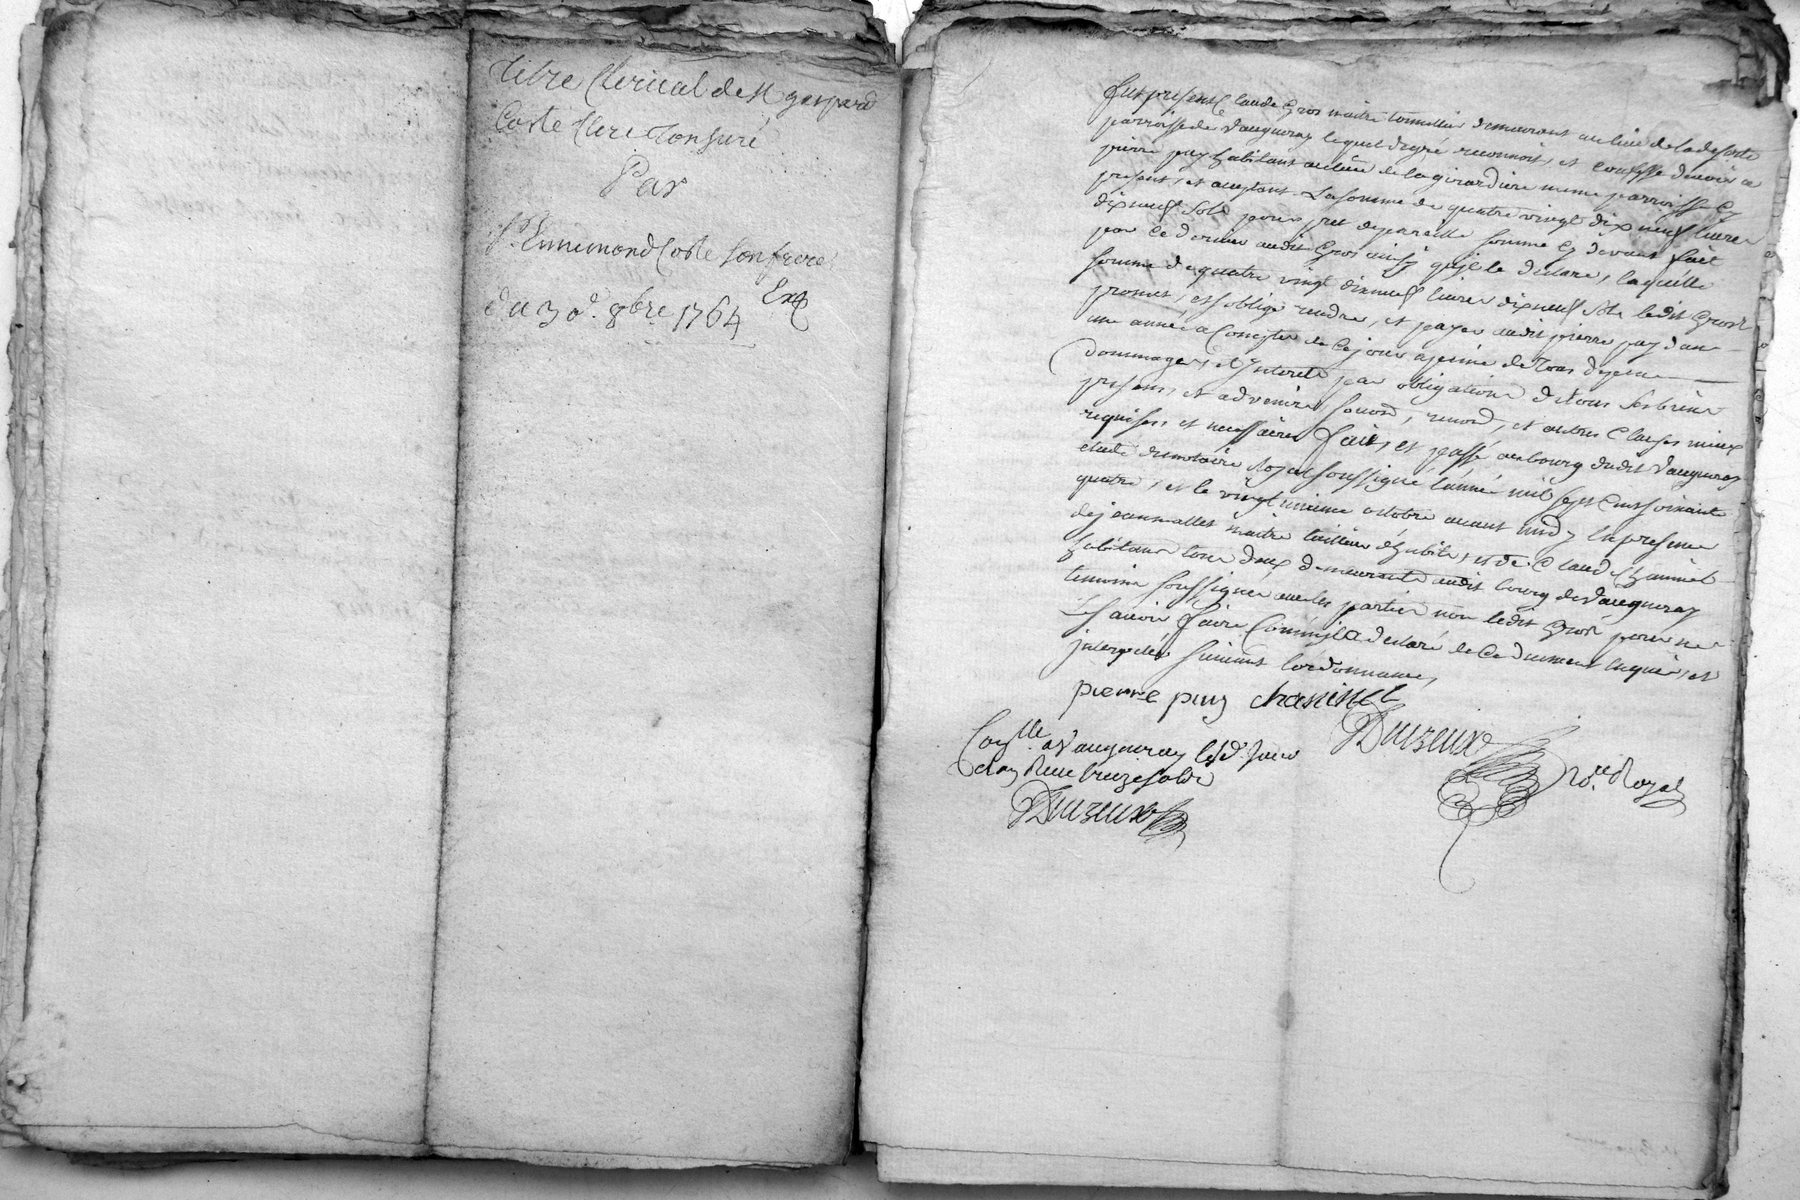 titre Clerical de Mr gaspard
Coste Clerc Tonsuré
Par
Sr Ennemond Coste son frere
du 30e. 8bre 1764
Exp
fut present Claude Gros maitre tonnellier demeurant au lieu de la deserte
parroisse de Vaugneray lequel de gré reconnoit, et confesse devoir a
pierre puy habitant au lieu de la girardiere meme parroisse cy
present, et acceptant La somme de quatre vingt dix neuf livres
dix neuf sols pour pret de pareille somme cy devant fait
par ce dernier audit Gros ainsy qu'il le declare, laquelle
somme de quatre vingt dix neuf livres dix neuf sols ledit Gros
promet, et s'oblige rendre, et payer audit pierre puy dans
une année a Compter de Ce jour a peine de Tous depens
dommages, et Interets par obligation de Tous ses biens
presens, et advenir, soumis, renond, et autres Clauses mieux
requises, et necessaires fait, et passé au bourg dudit Vaugneray
etude du notaire Royal soussigné l'année mil sept cens soixante
quatre, et le vingt unieme octobre avant midy En presence
de jean mallet maitre tailleur d'habits, et de Claude Chaninel
habitans tous deux demeurants audit bourg de Vaugneray
temoins soussignés avec les parties non ledit Gros pour ne
sçavoir faire Comme il a declaré de Ce duement Enquis, et
interpellé suivant l'ordonnance,
pierre puy chaninel
Duizeux
No.re Royal
Conlle. a Vaugneray ledt. jour
Reçu treize sols
Duizeux